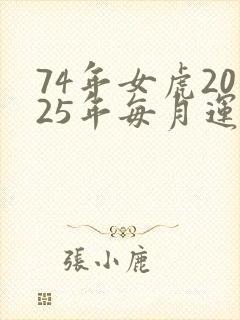 74年女虎20
25年每月運
張小鹿